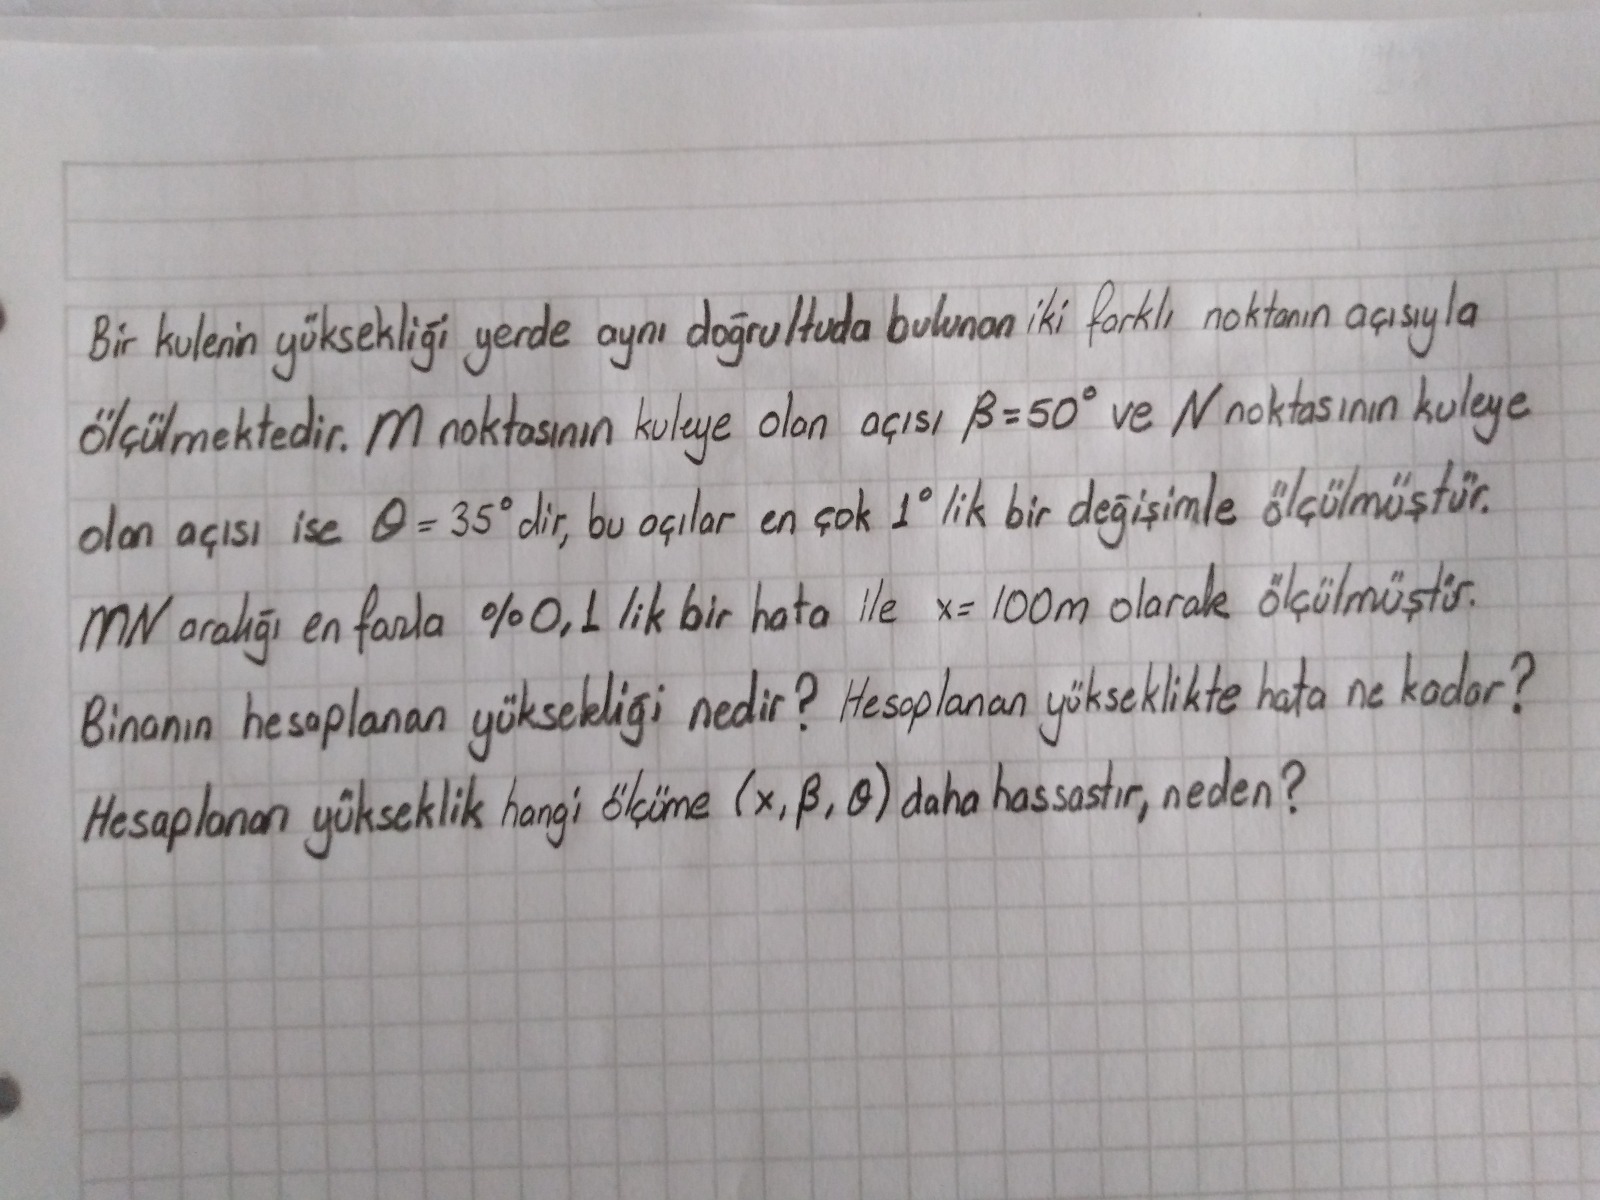 Bir kulenin yüksekliği yerde aynı doğrultuda bulunan iki farklı noktanın açısıyla
ölçülmektedir. M noktasının kuleye olan açısı β=50° ve N noktasının kuleye
olan açısı ise θ = 35° dir, bu açılar en çok 1° lik bir değişimle ölçülmüştür.
MN aralığı en fazla %0,1 lik bir hata ile x= 100m olarak ölçülmüştür.
Binanın hesaplanan yüksekliği nedir? Hesaplanan yükseklikte hata ne kadar?
Hesaplanan yükseklik hangi ölçüme (x, β, θ) daha hassastır, neden?